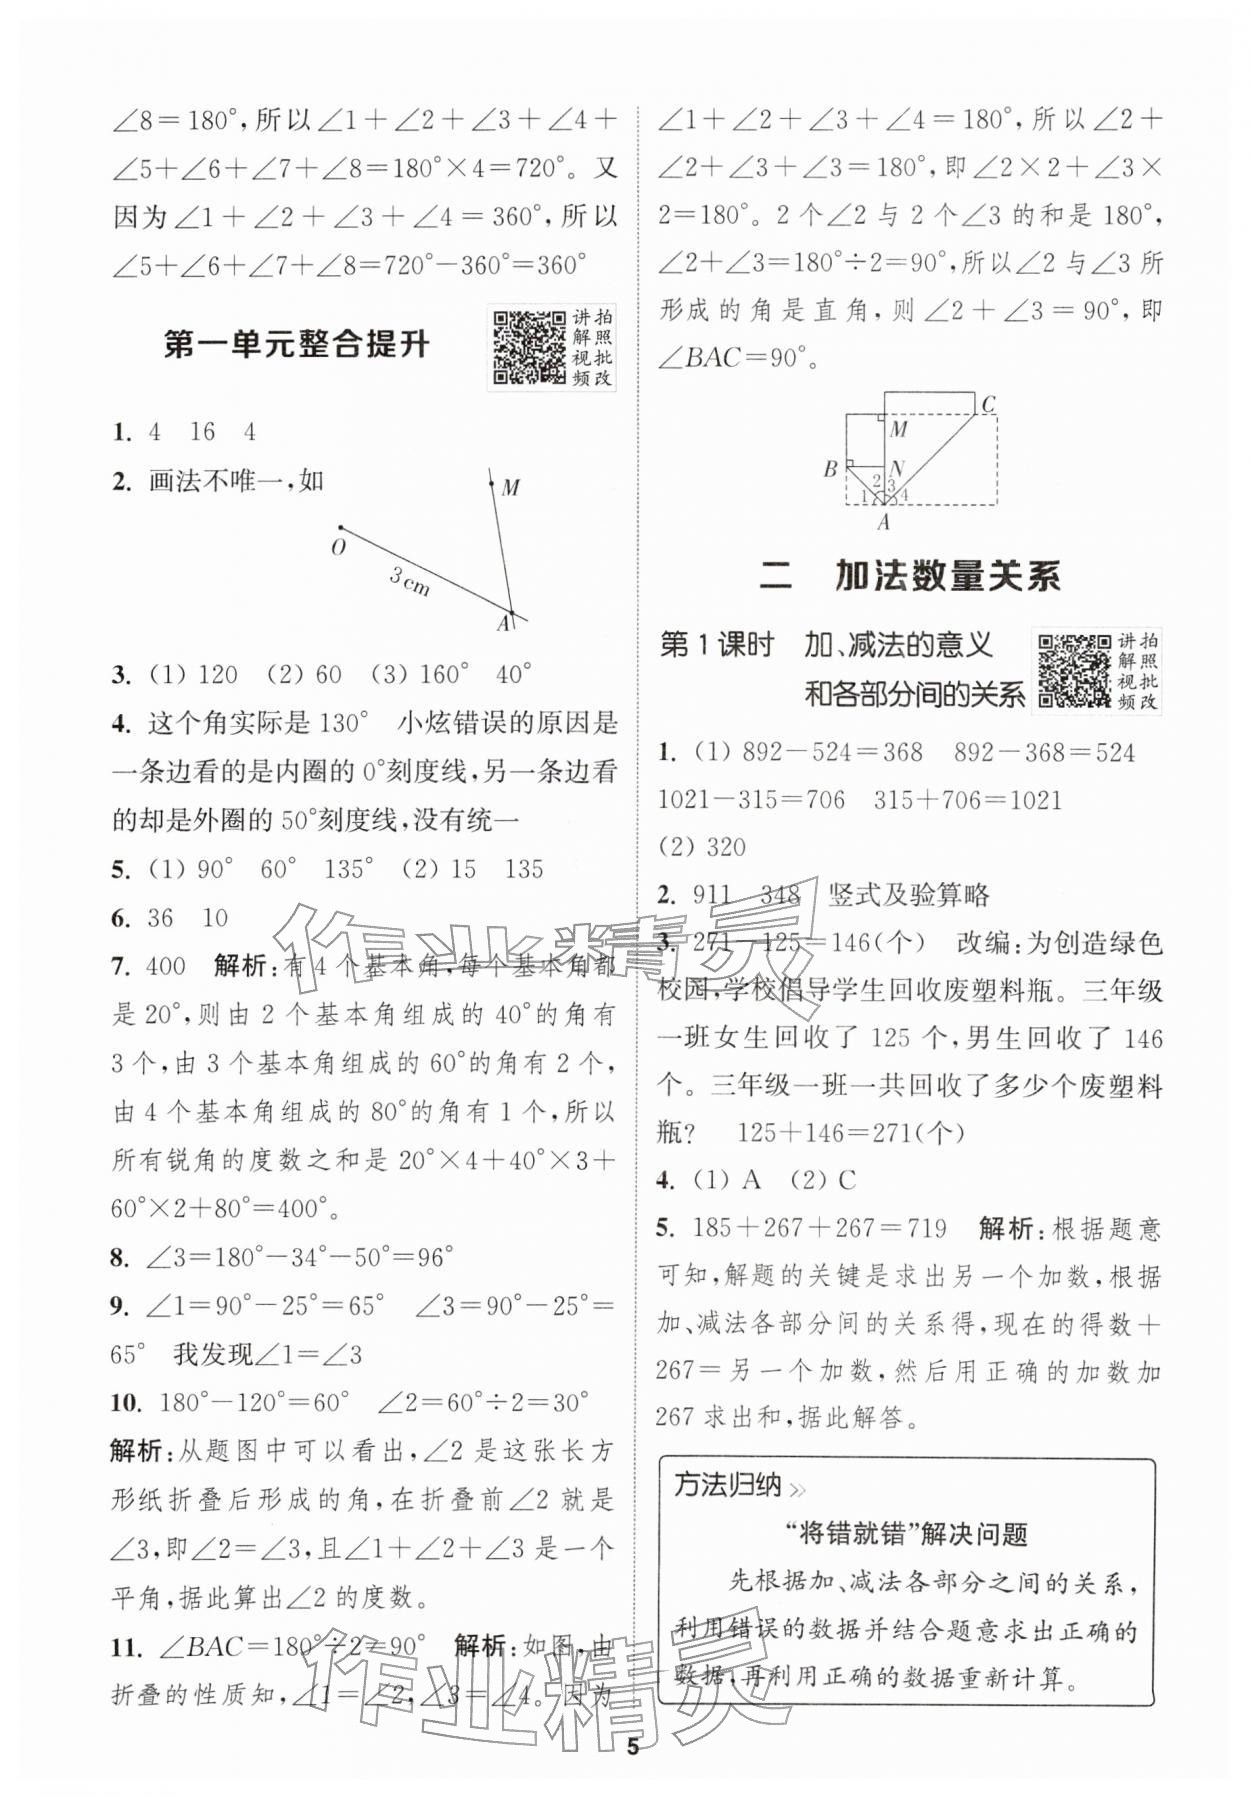 ∠8=180°,所以∠1+∠2+∠3+∠4+
∠5+∠6+∠7+∠8=180°×4=720°。又
因为∠1+∠2+∠3+∠4=360°,所以
∠5+∠6+∠7+∠8=720°-360°=360°
第一单元整合提升
讲拍
解照
视批
频改
1. 4 16 4
2. 画法不唯一,如
M
O
3cm
A
3. (1) 120 (2) 60 (3) 160° 40°
4. 这个角实际是 130° 小炫错误的原因是
一条边看的是内圈的 0°刻度线,另一条边看
的却是外圈的 50°刻度线,没有统一
5. (1) 90° 60° 135° (2) 15 135
6. 36 10
7. 400 解析:有 4 个基本角,每个基本角都
是 20°,则由 2 个基本角组成的 40°的角有
3 个,由 3 个基本角组成的 60°的角有 2 个,
由 4 个基本角组成的 80°的角有 1 个,所以
所有锐角的度数之和是 20°×4+40°×3+
60°×2+80°=400°。
8. ∠3=180°-34°-50°=96°
9. ∠1=90°-25°=65° ∠3=90°-25°=
65° 我发现∠1=∠3
10. 180°-120°=60° ∠2=60°÷2=30°
解析:从题图中可以看出,∠2 是这张长方
形纸折叠后形成的角,在折叠前∠2 就是
∠3,即∠2=∠3,且∠1+∠2+∠3 是一个
平角,据此算出∠2 的度数。
11. ∠BAC=180°÷2=90° 解析:如图,由
折叠的性质知,∠1=∠2,∠3=∠4。因为
∠1+∠2+∠3+∠4=180°,所以∠2+
∠2+∠3+∠3=180°,即∠2×2+∠3×
2=180°。2 个∠2 与 2 个∠3 的和是 180°,
∠2+∠3=180°÷2=90°,所以∠2 与∠3 所
形成的角是直角,则∠2+∠3=90°,即
∠BAC=90°。
C
M
B
N
2 3
1 4
A
二 加法数量关系
第 1 课时 加、减法的意义
和各部分间的关系
讲拍
解照
视批
频改
1. (1) 892-524=368 892-368=524
1021-315=706 315+706=1021
(2) 320
2. 911 348 竖式及验算略
3. 271-125=146(个) 改编:为创造绿色
校园,学校倡导学生回收废塑料瓶。三年级
一班女生回收了 125 个,男生回收了 146
个。三年级一班一共回收了多少个废塑料
瓶? 125+146=271(个)
4. (1) A (2) C
5. 185+267+267=719 解析:根据题意
可知,解题的关键是求出另一个加数,根据
加、减法各部分间的关系得,现在的得数+
267=另一个加数,然后用正确的加数加
267 求出和,据此解答。
方法归纳
“将错就错”解决问题
先根据加、减法各部分之间的关系,
利用错误的数据并结合题意求出正确的
数据,再利用正确的数据重新计算。
作业精灵
作业精灵
5